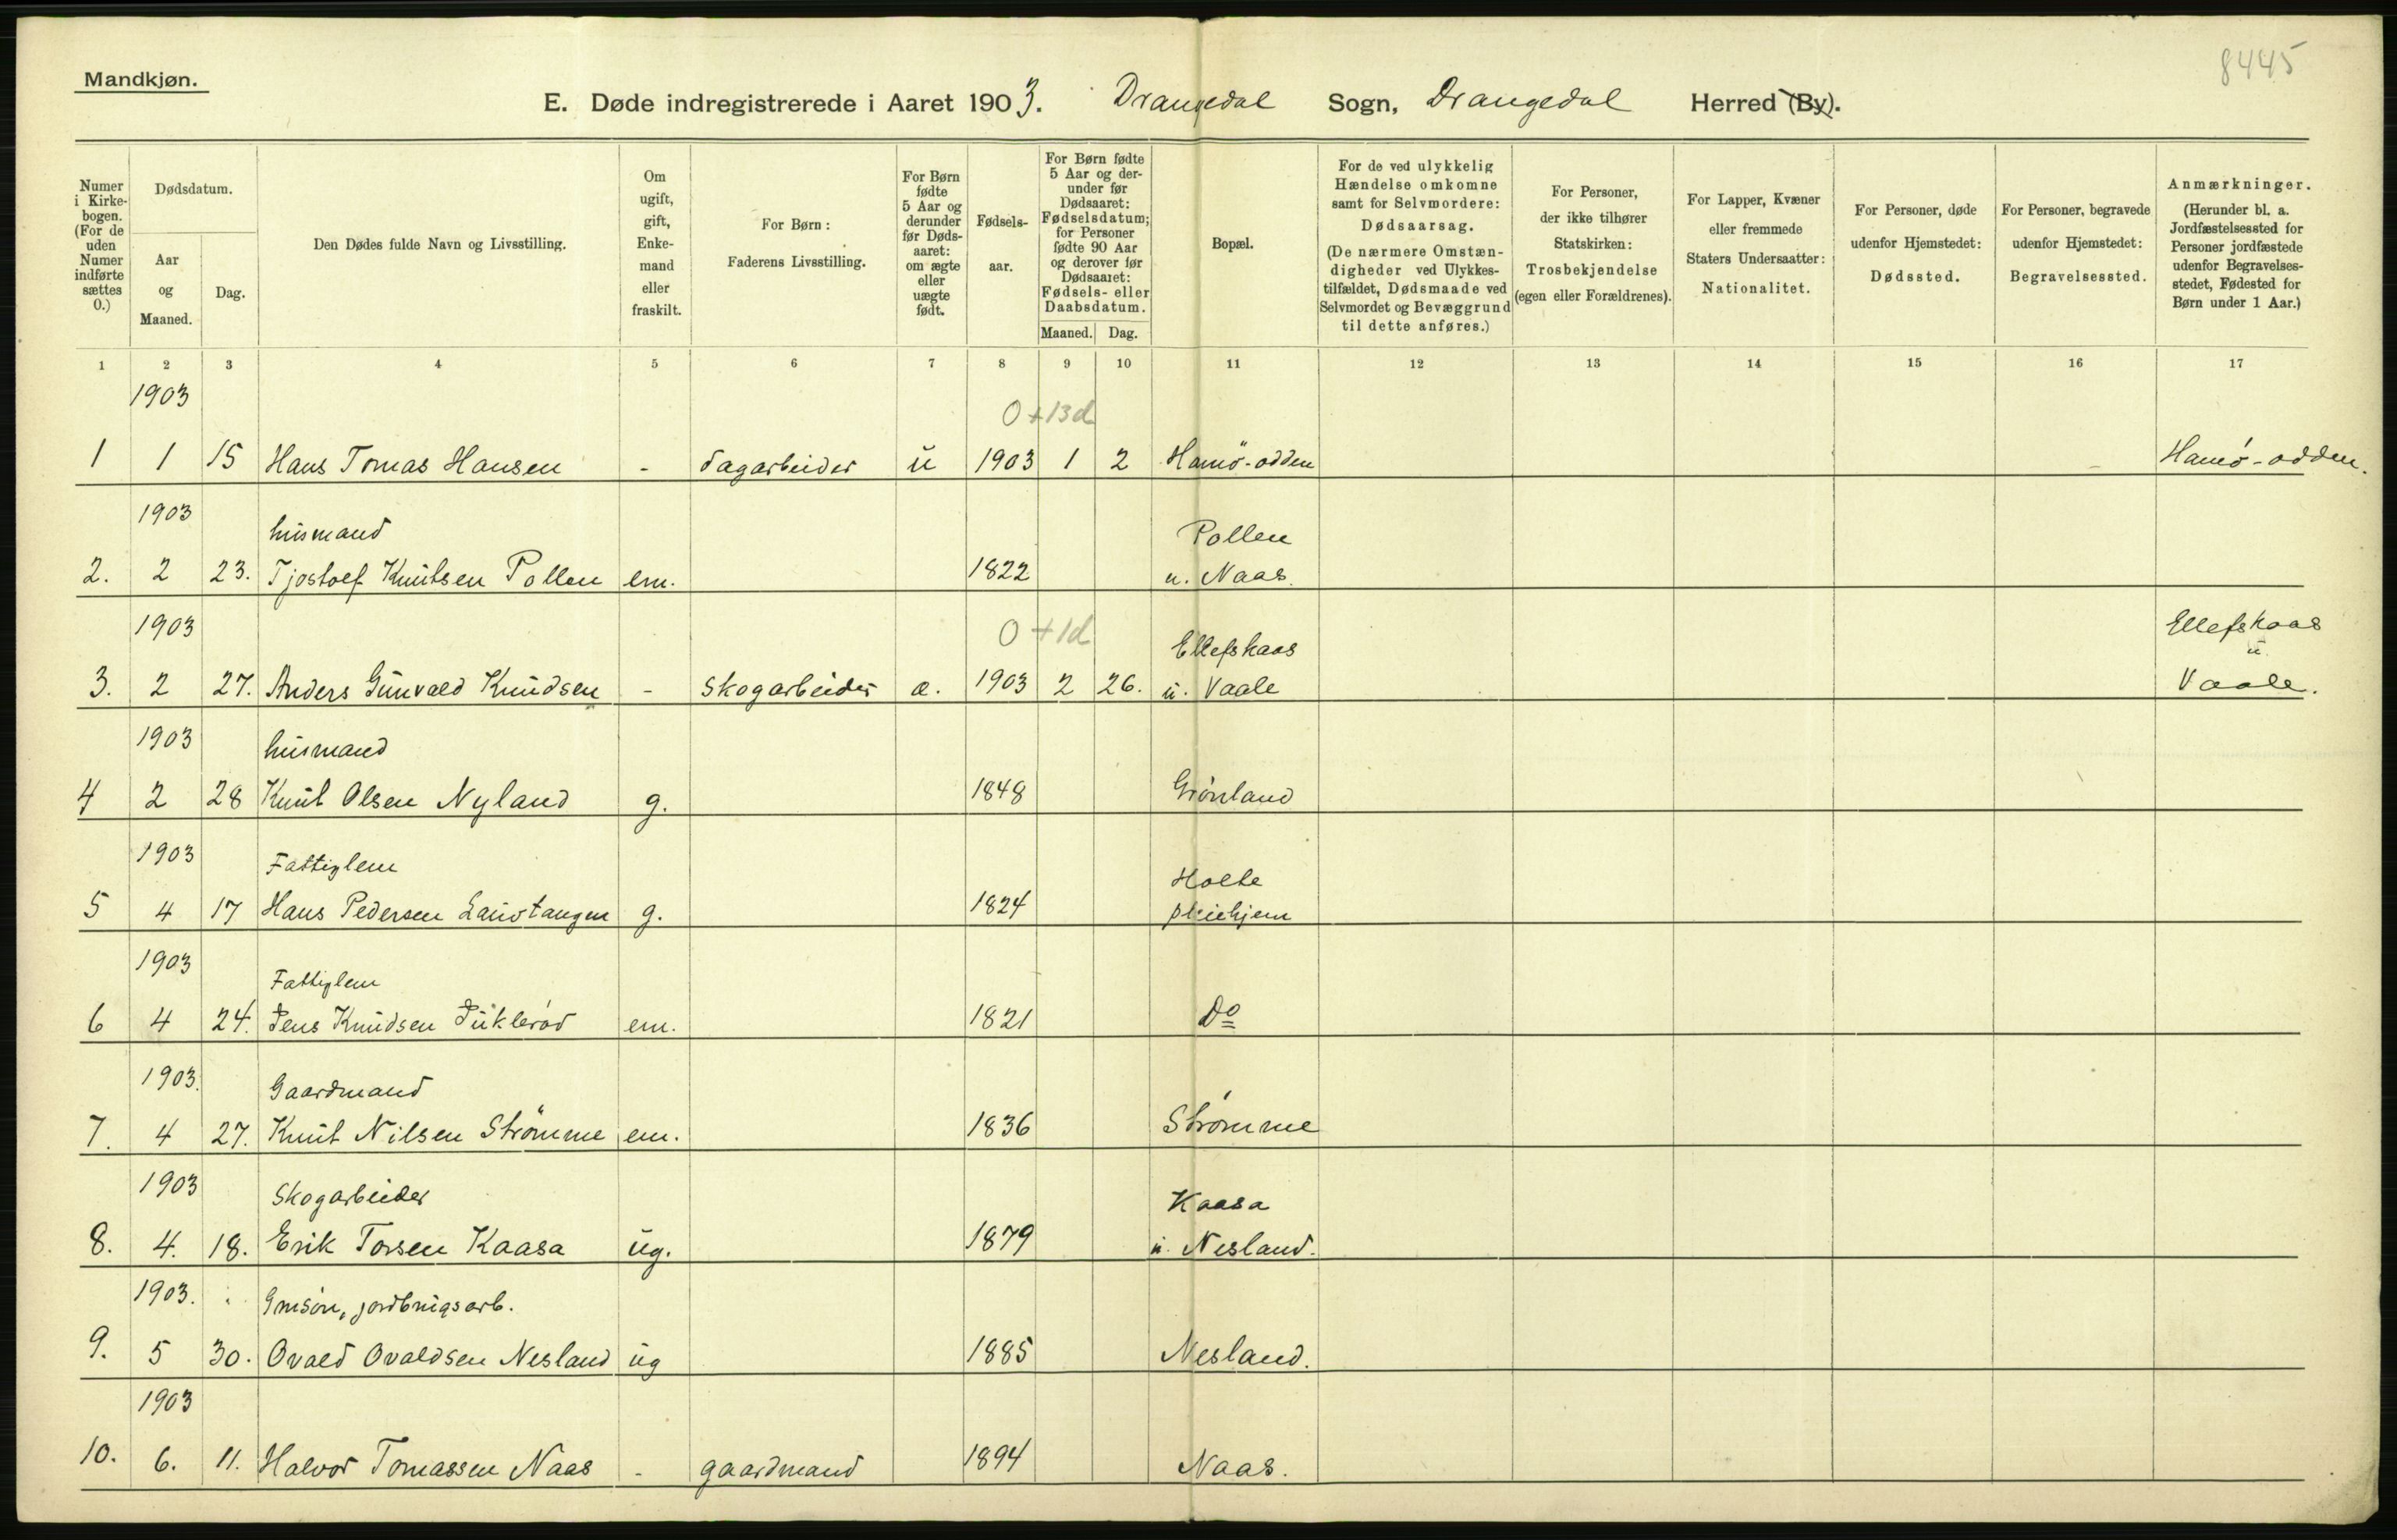 8445
Mandkjøn.
E. Døde indregistrerede i Aaret 1903. Drangedal Sogn, Drangedal Herred (By).
Numer i Kirkebogen. (For de uden Numer indførte sættes 0.)
Dødsdatum.
Aar og Maaned.
Dag.
Den Dødes fulde Navn og Livsstilling.
Om ugift, gift, Enkemand eller fraskilt.
For Børn: Faderens Livsstilling.
For Børn fødte 5 Aar og derunder før Dødsaaret: om ægte eller uægte født.
Fødselsaar.
For Børn fødte 5 Aar og derunder før Dødsaaret: Fødselsdatum; for Personer fødte 90 Aar og derover før Dødsaaret: Fødsels- eller Daabsdatum.
Maaned. Dag.
Bopæl.
For de ved ulykkelig Hændelse omkomne samt for Selvmordere: Dødsaarsag. (De nærmere Omstændigheder ved Ulykkestilfældet, Dødsmaade ved Selvmordet og Bevæggrund til dette anføres.)
For Personer, der ikke tilhører Statskirken: Trosbekjendelse (egen eller Forældrenes).
For Lapper, Kvæner eller fremmede Staters Undersaatter: Nationalitet.
For Personer, døde udenfor Hjemstedet: Dødssted.
For Personer, begravede udenfor Hjemstedet: Begravelsessted.
Anmærkninger. (Herunder bl. a. Jordfæstelsessted for Personer jordfæstede udenfor Begravelsesstedet, Fødested for Børn under 1 Aar.)
1 2 3 4 5 6 7 8 9 10 11 12 13 14 15 16 17
1903 0+13d
1 1 15 Hans Tomas Hansen - dagarbeider u 1903 1 2 Hamö-odden Hamö-odden.
1903 husmand Pollen
2. 2 23. Tjostolf Knutsen Pollen em. 1822 u. Naas.
1903 0+1d Ellefskaas Ellefskaas u
3. 2 27. Anders Gunvald Knudsen - Skogarbeider æ. 1903 2 26. u. Vaale Vaale.
1903 husmand
4 2 28 Knut Olsen Nyland g. 1848 Grönland
1903 Fattiglem Holte
5 4 17 Hans Pedersen g. 1824 pleiehjem
1903 Fattiglem
6 4 24. Jens Knudsen em. 1821 Do
1903. Gaardmand
7. 4 27. Knut Nilsen Strömme em. 1836 Strömme
1903 Skogarbeider Kaasa
8. 4. 18. Erik Torsen Kaasa ug. 1879 u. Nesland.
1903. Gmsön, jordbrugsarb.
9. 5 30. Ovald Ovaldsen Nesland ug 1885 Nesland.
1903
10. 6. 11. Halvor Tomassen Naas - gaardmand 1894 Naas.